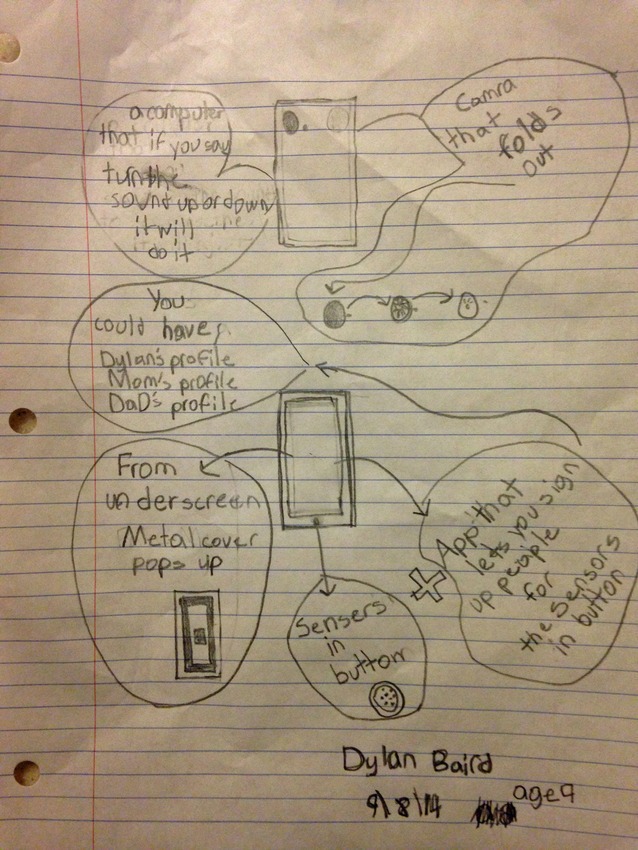 a computer
that if you say
turn the
sound up or down
it will
do it
Camra
that
folds
out
You
could have,
Dylan's profile
Mom's profile
DaD's profile
From
underscreen
Metal cover
pops up
Sensers
in
button
App that
lets you sign
up people
for
the Sensors
in button
Dylan Baird
9\8\14
age 9